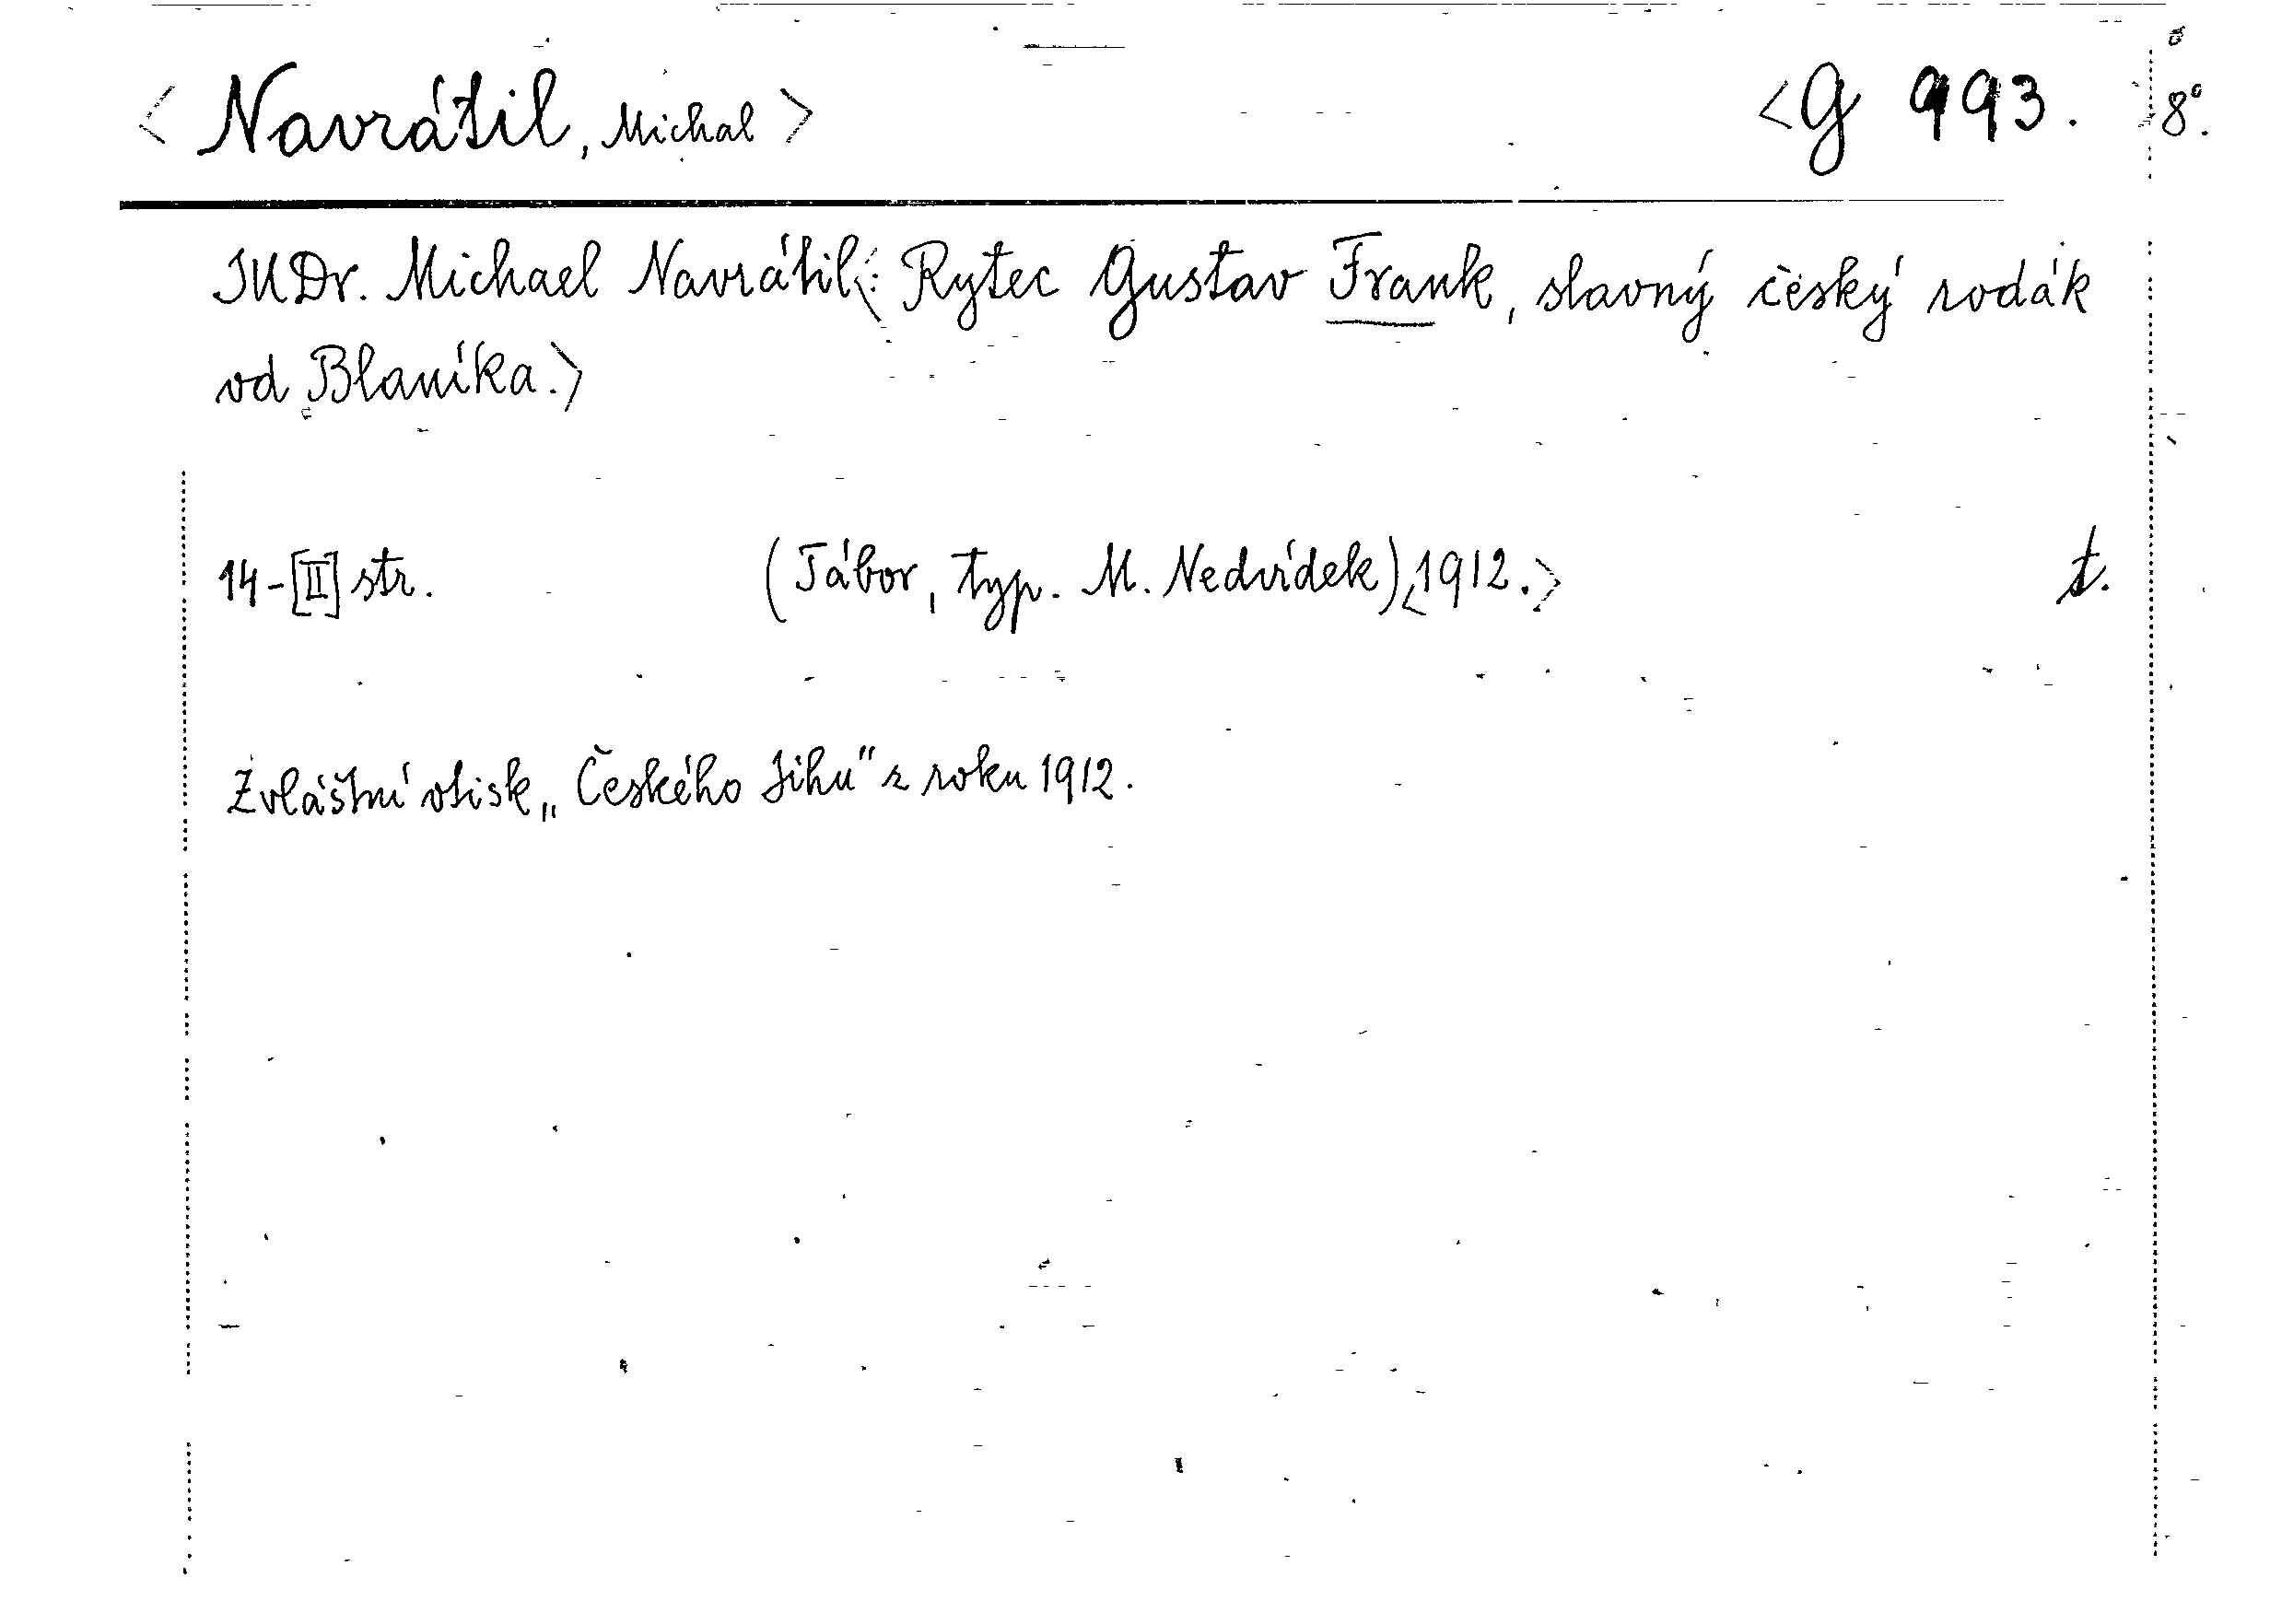 <Navrátil, Michal> <G 993. 8°.
JUDr. Michael Navrátil<: Rytec Gustav Frank, slavný český rodák
od Blaníka.>
14-[II] str. (Tábor, typ. M. Nedvídek)<1912.> t.
Zvláštní otisk „Českého Jihu" z roku 1912.